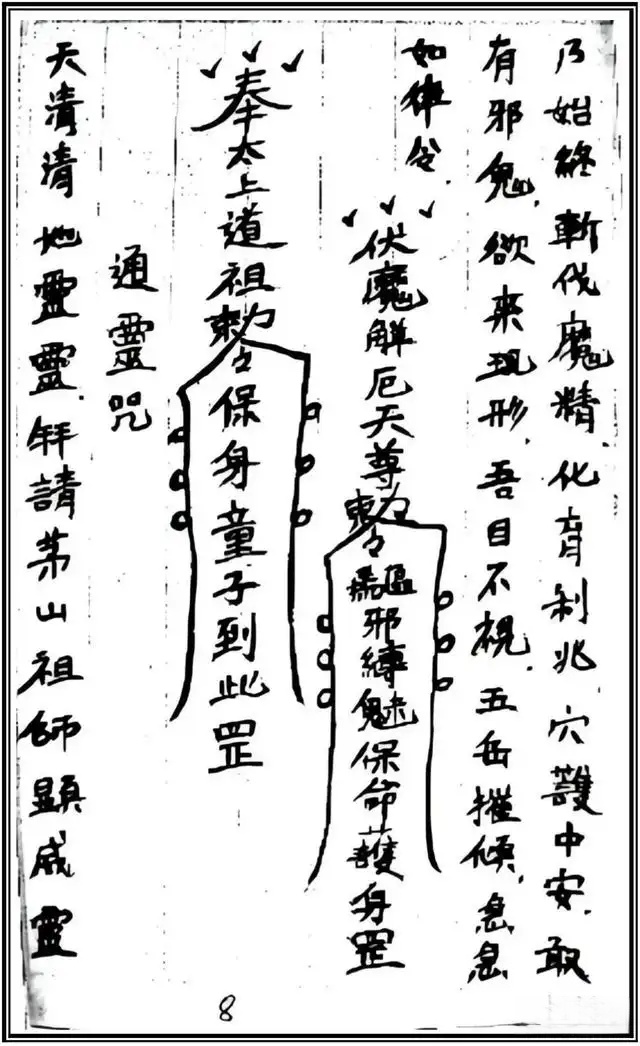 乃始終斬伐魔精.化育利兆.穴護中安.敢
有邪鬼.欲来現形.吾目不視.五岳摧傾.急急
如律令.
伏魔解厄天尊勅令驅邪縛魅保命護身罡
奉太上道祖勅令保身童子到此罡
通靈咒
天清清地靈靈.拜請茅山祖師顯威靈
8